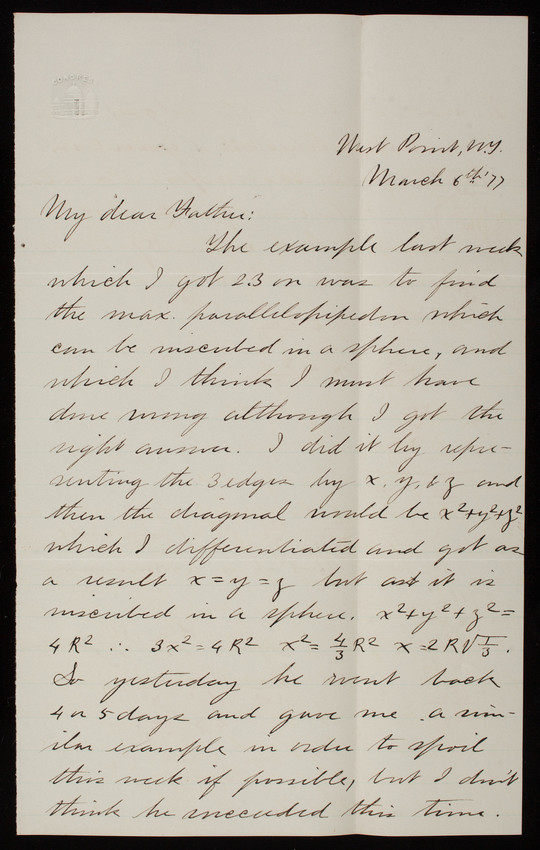 West Point, N.Y.
March 6th '77
My dear Father:
The example last week
which I got 2.3 on was to find
the max. parallelopipedon which
can be inscribed in a sphere, and
which I think I must have
done wrong although I got the
right answer. I did it by repre-
senting the 3 edges by x, y, & z and
then the diagonal would be x²+y²+z²
which I differentiated and got as
a result x = y = z but as it is
inscribed in a sphere. x²+y²+z²=
4R² ∴ 3x²=4R² x²=4/3R² x=2R√1/3.
So yesterday he went back
4 or 5 days and gave me a sim-
ilar example in order to spoil
this week if possible, but I don't
think he succeeded this time.